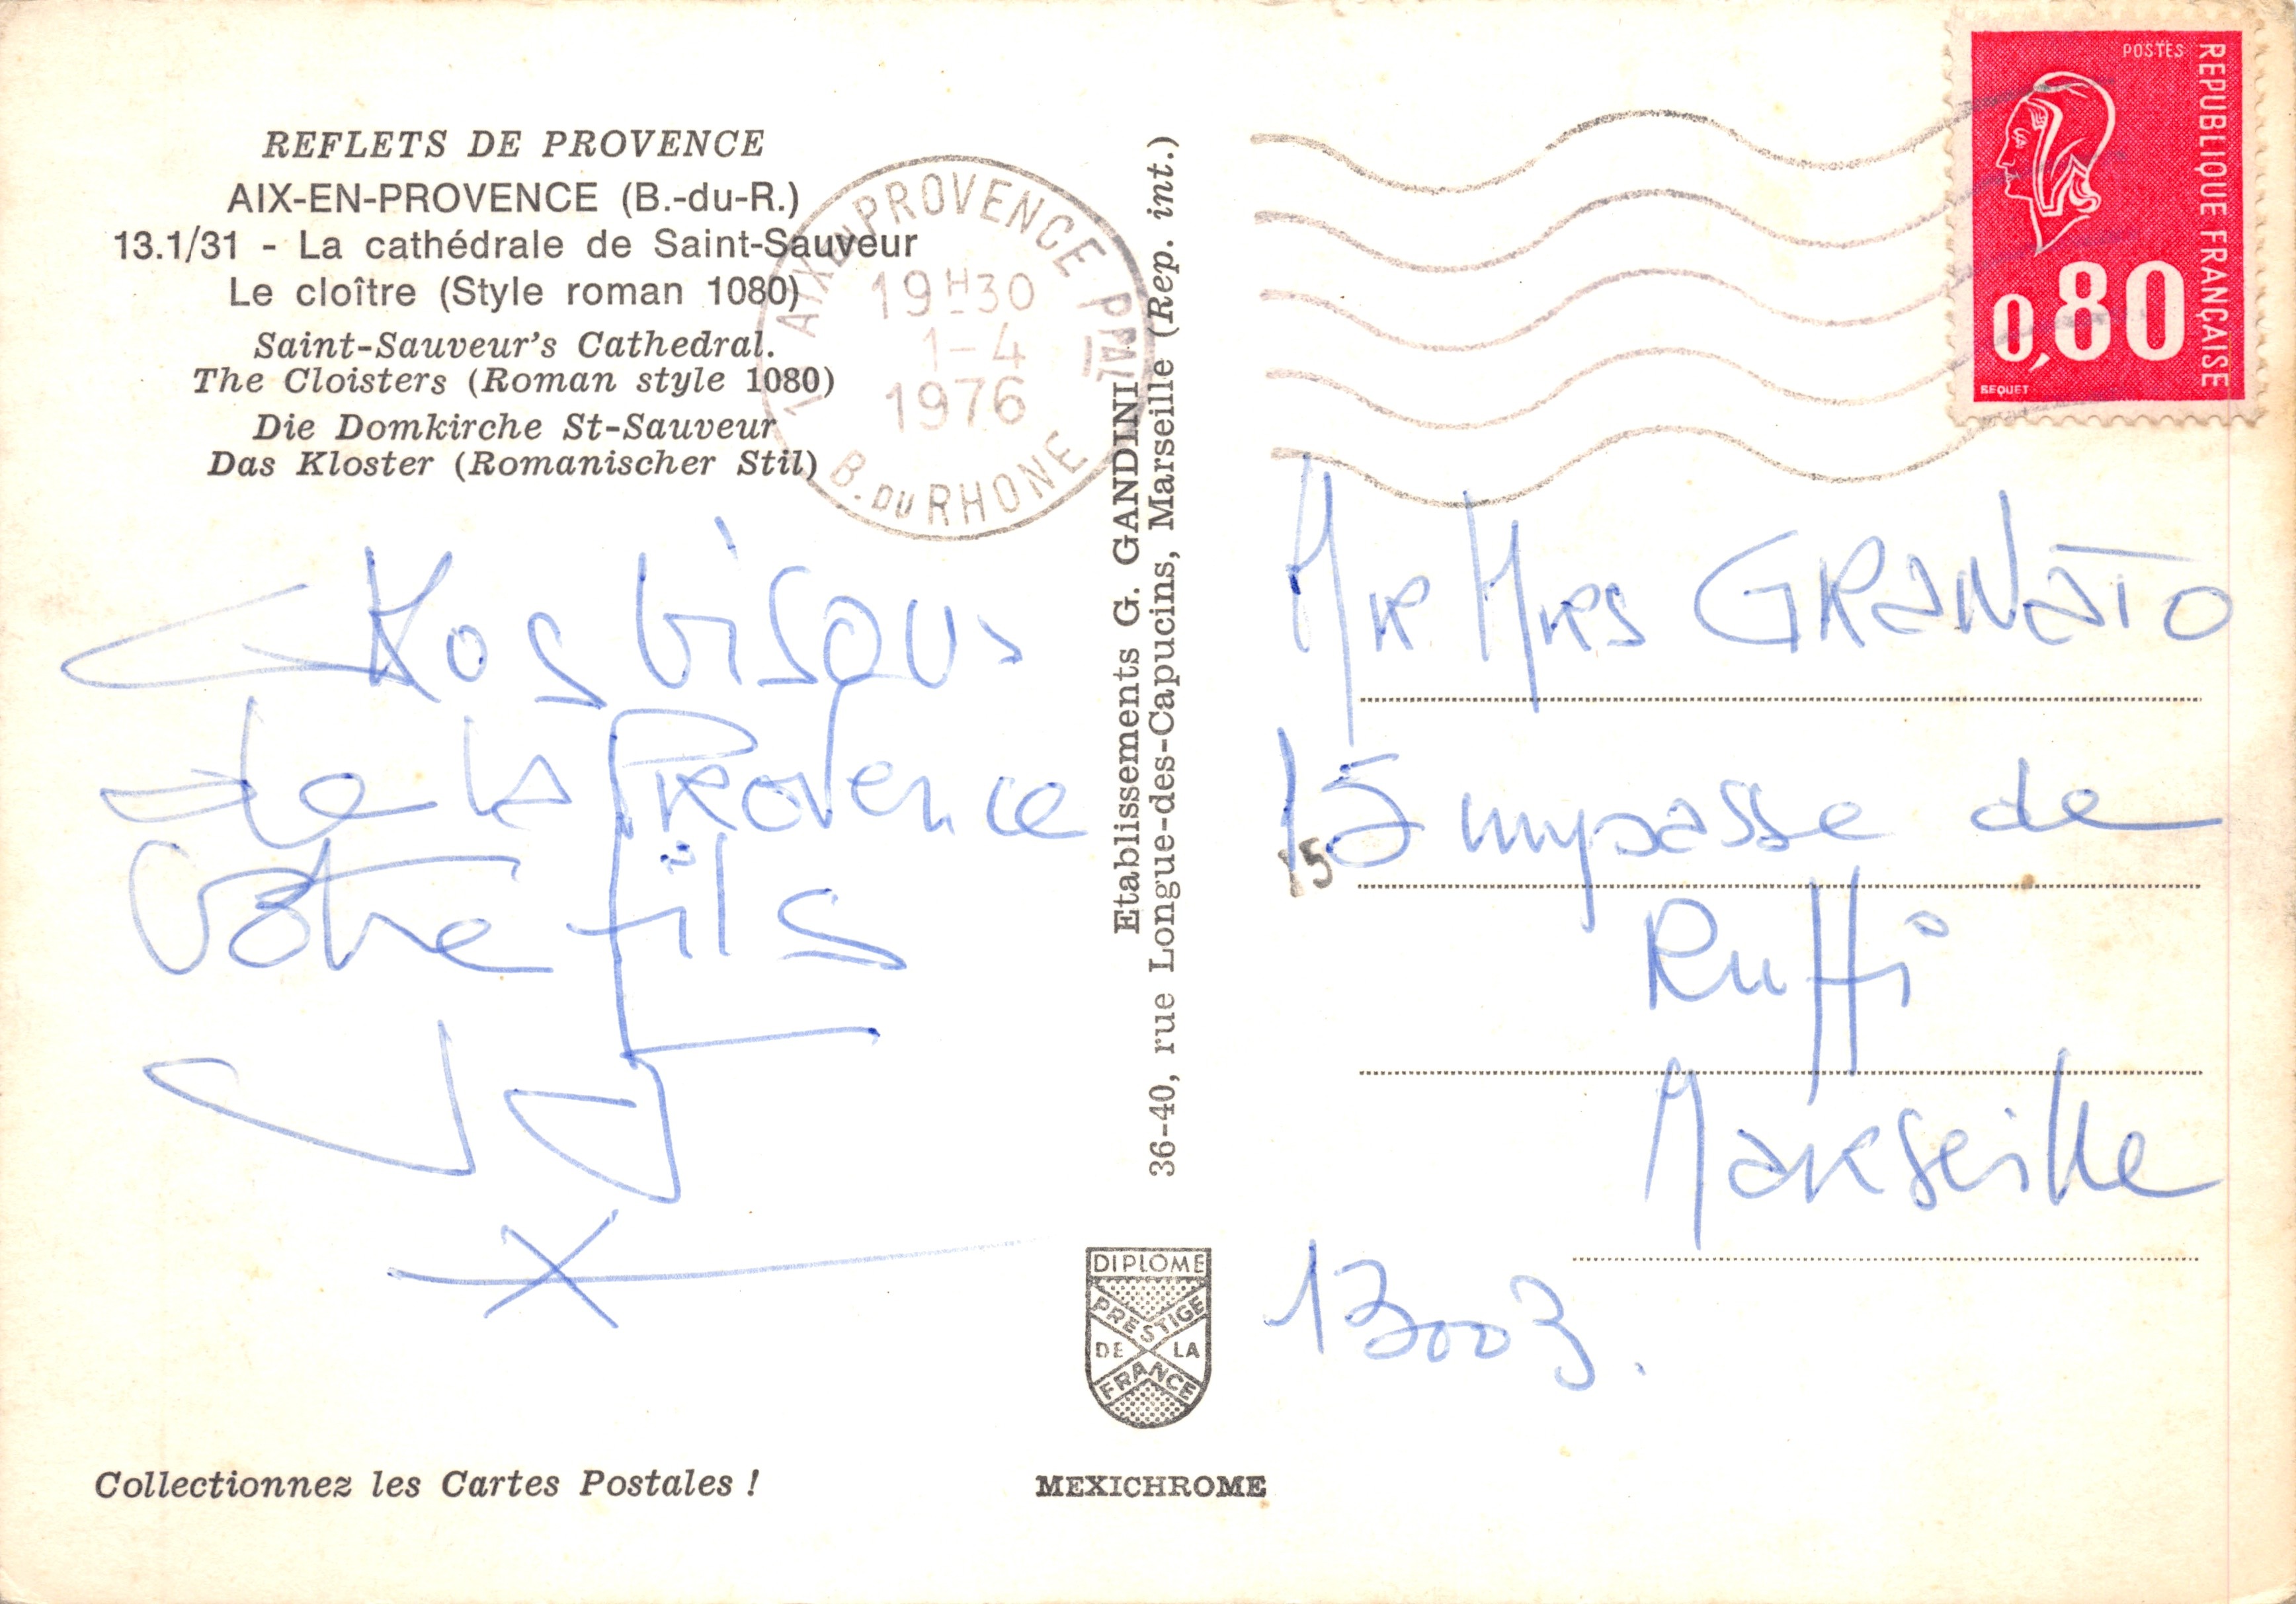 REFLETS DE PROVENCE
AIX-EN-PROVENCE (B.-du-R.)
13.1/31 - La cathédrale de Saint-Sauveur
Le cloître (Style roman 1080)
Saint-Sauveur's Cathedral.
The Cloisters (Roman style 1080)
Die Domkirche St-Sauveur
Das Kloster (Romanischer Stil)
AIX EN PROVENCE PPAL
19H30
1-4
1976
B. DU RHONE
bisous
de la Provence
Votre fils
Collectionnez les Cartes Postales !
Etablissements G. GANDINI
36-40, rue Longue-des-Capucins, Marseille (Rep. int.)
DIPLOME
PRESTIGE
DE LA
FRANCE
MEXICHROME
POSTES
REPUBLIQUE FRANÇAISE
0,80
BEQUET
Mr Mrs GRANATO
15 impasse de
15
Ruffi
Marseille
13003.